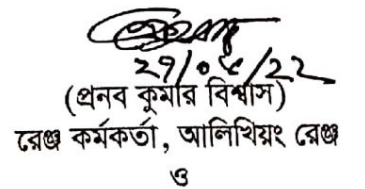 ২৭/০৫/২২
(প্রনব কুমার বিশ্বাস)
রেঞ্জ কর্মকর্তা, আলিখিয়ং রেঞ্জ
ও